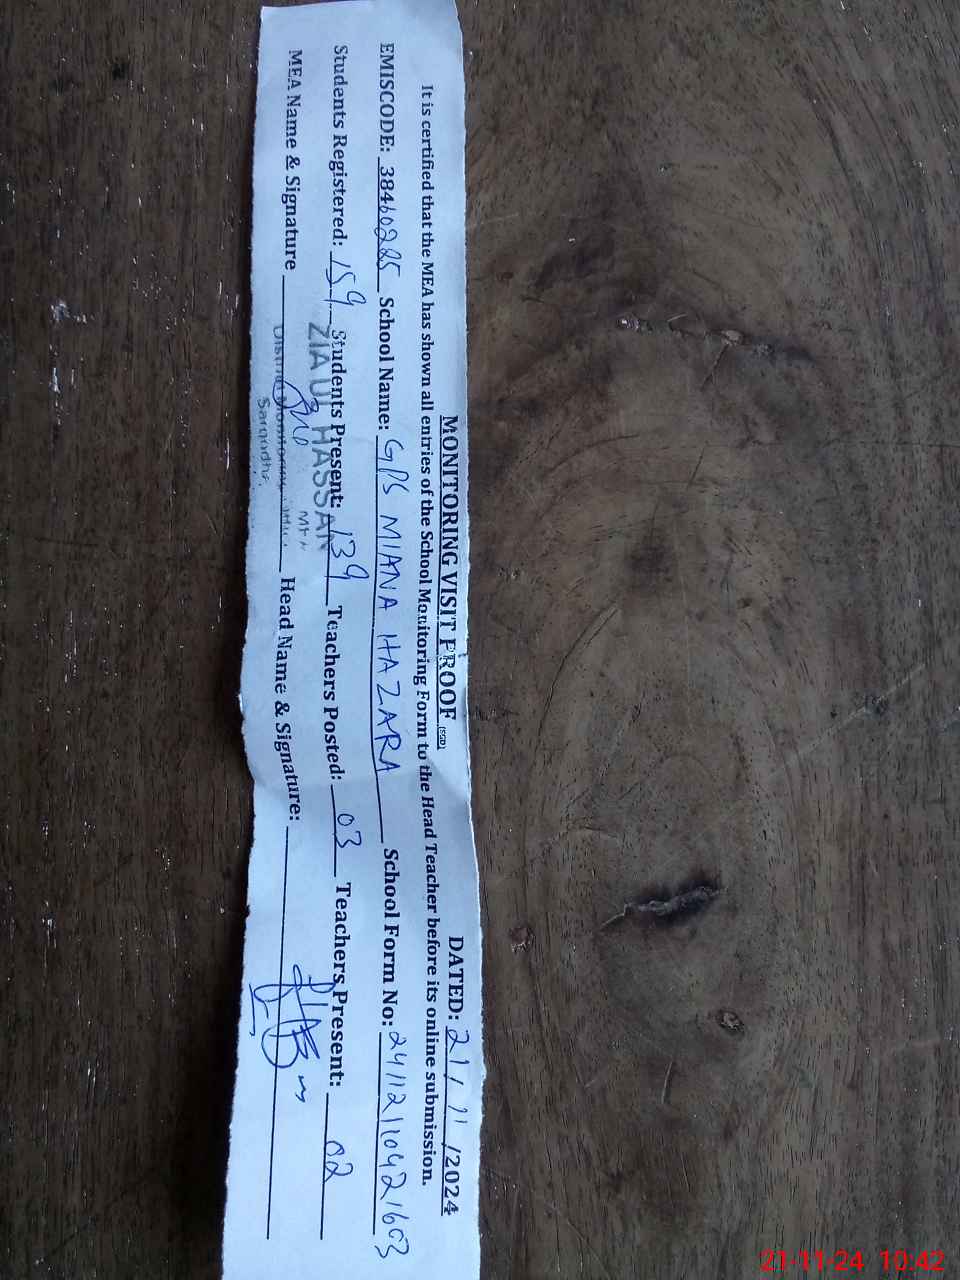 MONITORING VISIT PROOF (SGD) DATED: 21/11/2024
It is certified that the MEA has shown all entries of the School Monitoring Form to the Head Teacher before its online submission.
EMISCODE: 38460225 School Name: GPS MIANA HAZARA School Form No: 24112110421603
Students Registered: 159 Students Present: 139 Teachers Posted: 03 Teachers Present: 02
ZIA UL HASSAN
MEA
MEA Name & Signature Head Name & Signature:
District Monitoring Office
Sargodha.
21-11-24 10:42